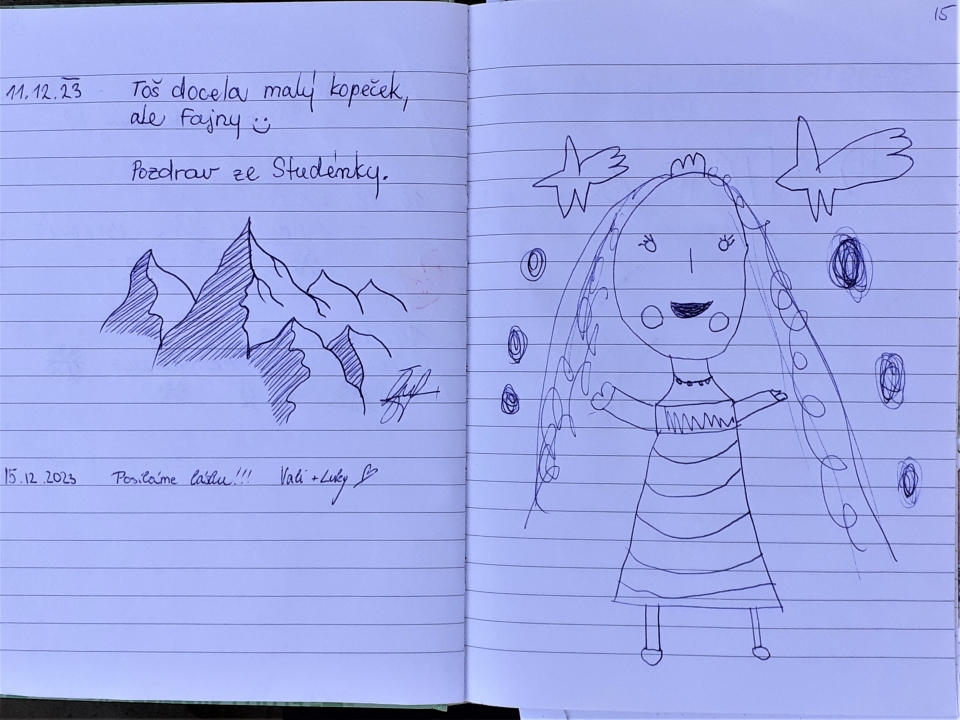 11.12.23 Toš docela malý kopeček,
ale fajny :)
Pozdrav ze Studénky.
15.12.2023 Posíláme lásku!!! Vali + Luky ♡
15